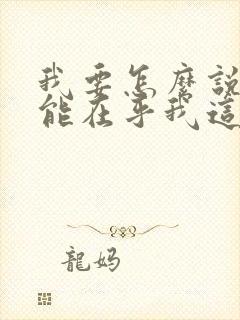 我要怎麼說
能在乎我這
龍媽